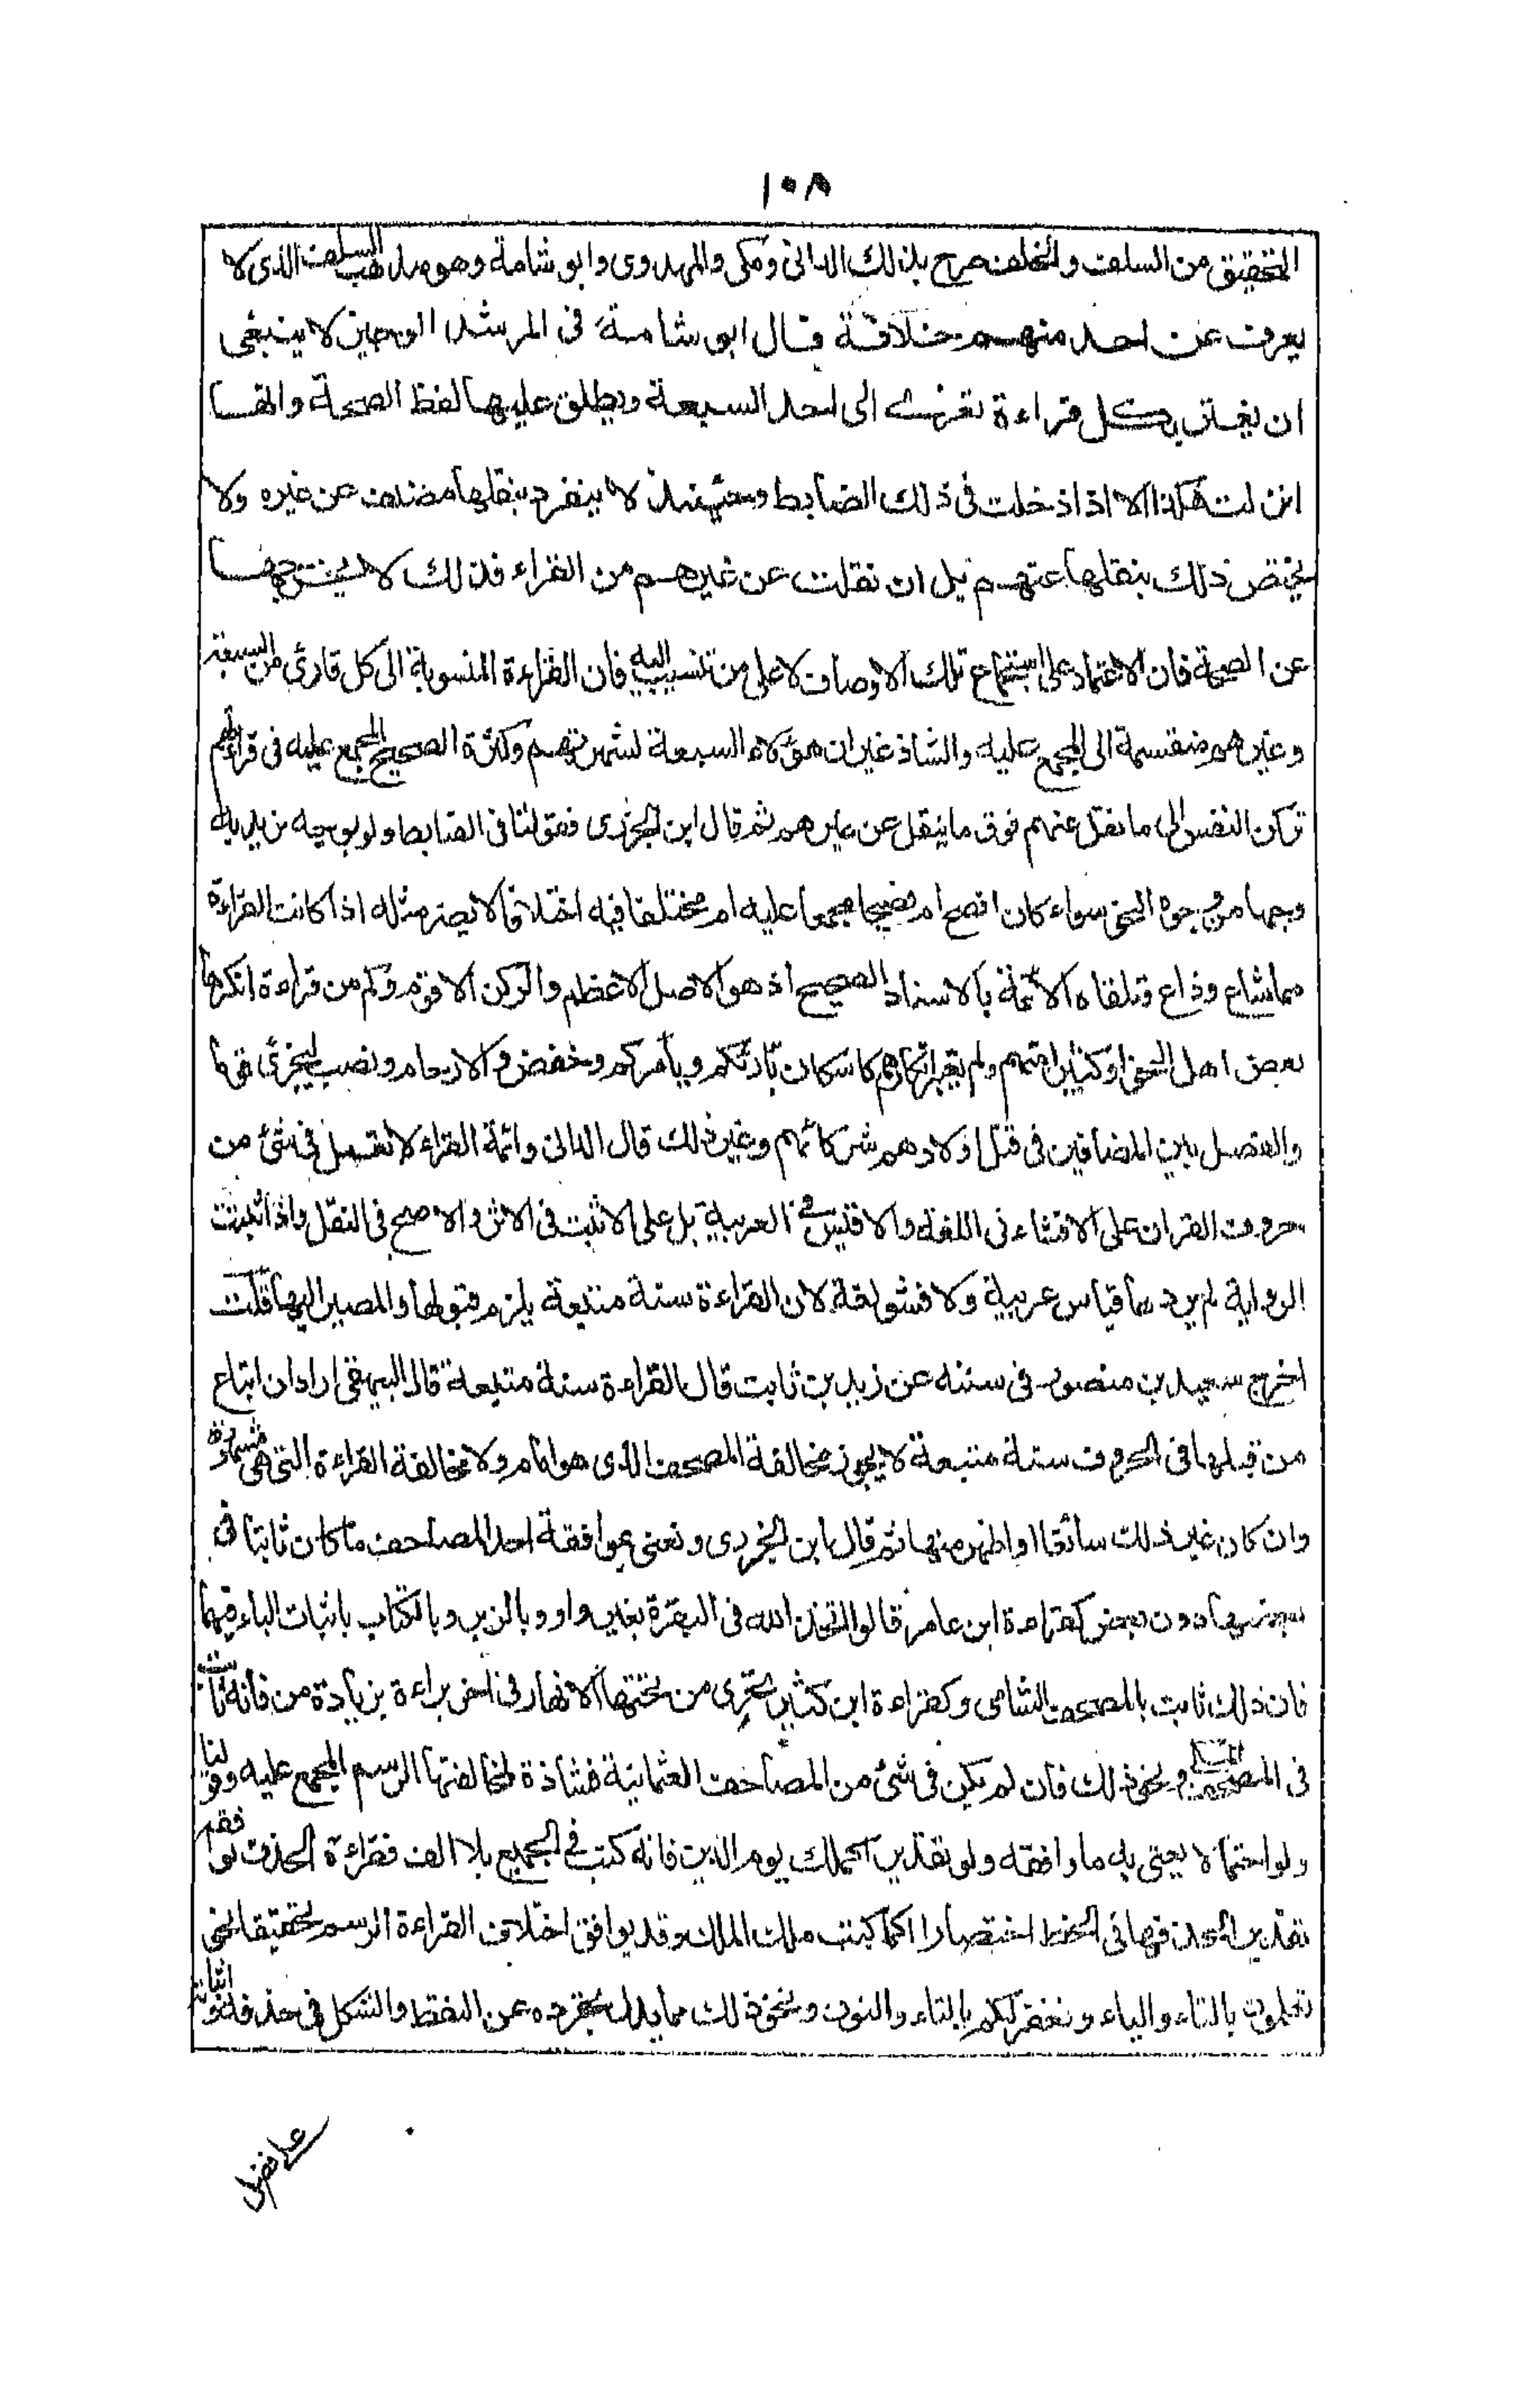 ١٠٨
التحقيق من السلف والخلف صرح بذلك الدانى ومكى والمهدوى وابو شامة وهو مذهب السلف الذى لا
يعرف عن احد منهم خلافة قال ابو شامة فى المرشد الوجيز لا ينبغى
ان يغتر بكل قراءة تعزى الى احد السبعة ويطلق عليها لفظ الصحة وانها
انزلت هكذا الا اذا دخلت فى ذلك الضابط وحينئذ لا ينفرد بنقلها مصنف عن غيره ولا
يختص ذلك بنقلها عنهم بل ان نقلت عن غيرهم من القراء فذلك لا يخرجها
عن الصحة فان الاعتماد على استجماع تلك الاوصاف لا على من تنسب اليه فان القراءة المنسوبة الى كل قارئ من السبعة
وغيرهم منقسمة الى المجمع عليه والشاذ غير ان هؤلاء السبعة لشهرتهم وكثرة الصحيح المجمع عليه فى قراءتهم
تركن النفس الى ما نقل عنهم فوق ما ينقل عن غيرهم ثم قال ابن الجزرى فقولنا فى الضابط ولو بوجه نريد به
وجها من وجوه النحو سواء كان افصح ام فصيحا مجمعا عليه ام مختلفا فيه اختلافا لا يضر مثله اذا كانت القراءة
مما شاع وذاع وتلقاه الائمة بالاسناد الصحيح اذ هو الاصل الاعظم والركن الاقوم وكم من قراءة انكرها
بعض اهل النحو او كثير منهم ولم يعتبر انكارهم كاسكان بارئكم ويأمركم وخفض والارحام ونصب ليجزى قوما
والفصل بين المضافين فى قتل اولادهم شركائهم وغير ذلك قال الدانى وائمة القراء لا تعمل فى شئ من
حروف القران على الافشاء فى اللغة والاقيس فى العربية بل على الاثبت فى الاثر والاصح فى النقل واذا ثبتت
الرواية لم يردها قياس عربية ولا فشو لغة لان القراءة سنة متبعة يلزم قبولها والمصير اليها قلت
اخرج سعيد بن منصور فى سننه عن زيد بن ثابت قال القراءة سنة متبعة قال البيهقى اراد ان اتباع
من قبلها فى الحروف سنة متبعة لا يجوز مخالفة المصحف الذى هو امام ولا مخالفة القراءة التى هى مشهورة
وان كان غير ذلك سائغا او اظهر منها ثم قال ابن الجزرى ونعنى بموافقة احد المصاحف ما كان ثابتا فى
بعضها دون بعض كقراءة ابن عامر قالوا اتخذ الله فى البقرة بغير واو وبالزبر وبالكتاب باثبات الباء فيهما
فان ذلك ثابت بالمصحف الشامى وكقراءة ابن كثير تجرى من تحتها الانهار فى اخر براءة بزيادة من فانه ثابت
فى المصحف المكى ونحو ذلك فان لم يكن فى شئ من المصاحف العثمانية فشاذة لمخالفتها الرسم المجمع عليه وقولنا
ولو احتمالا يعنى به ما وافقه ولو تقديرا كملك يوم الدين فانه كتب فى الجميع بلا الف فقراءة الحذف توافقه
تقديرا لحذفها فى الخط اختصارا كما كتب ملك الملك وقد يوافق اختلاف القراءة الرسم تحقيقا نحو
تعلمون بالتاء والياء ونغفر لكم بالتاء والنون ونحو ذلك مما يدل بتجرده عن النقط والشكل فى حذفه واثباته